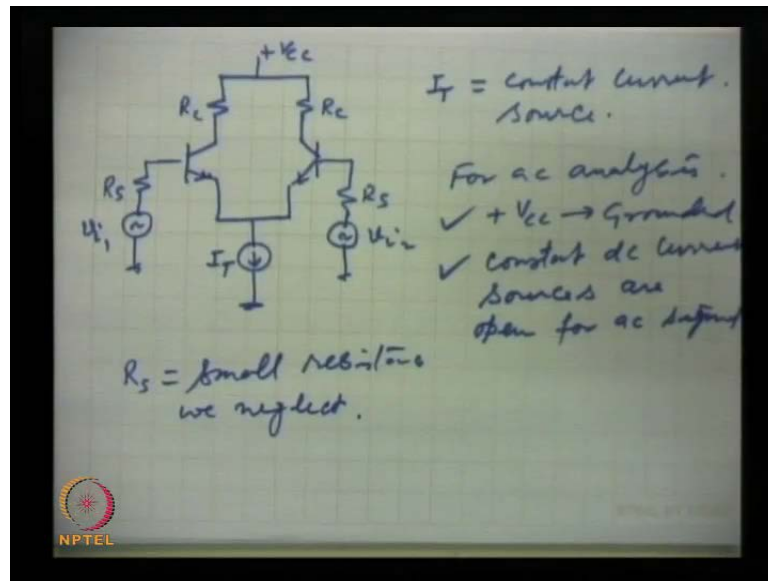 + Vcc
Rc
Rc
Rs
Rs
vi1
vi2
IT
IT = constant current
source.
For ac analysis.
✓ + Vcc → Grounded
✓ constant dc current
sources are
open for ac signal
Rs = small resistance
we neglect.
NPTEL